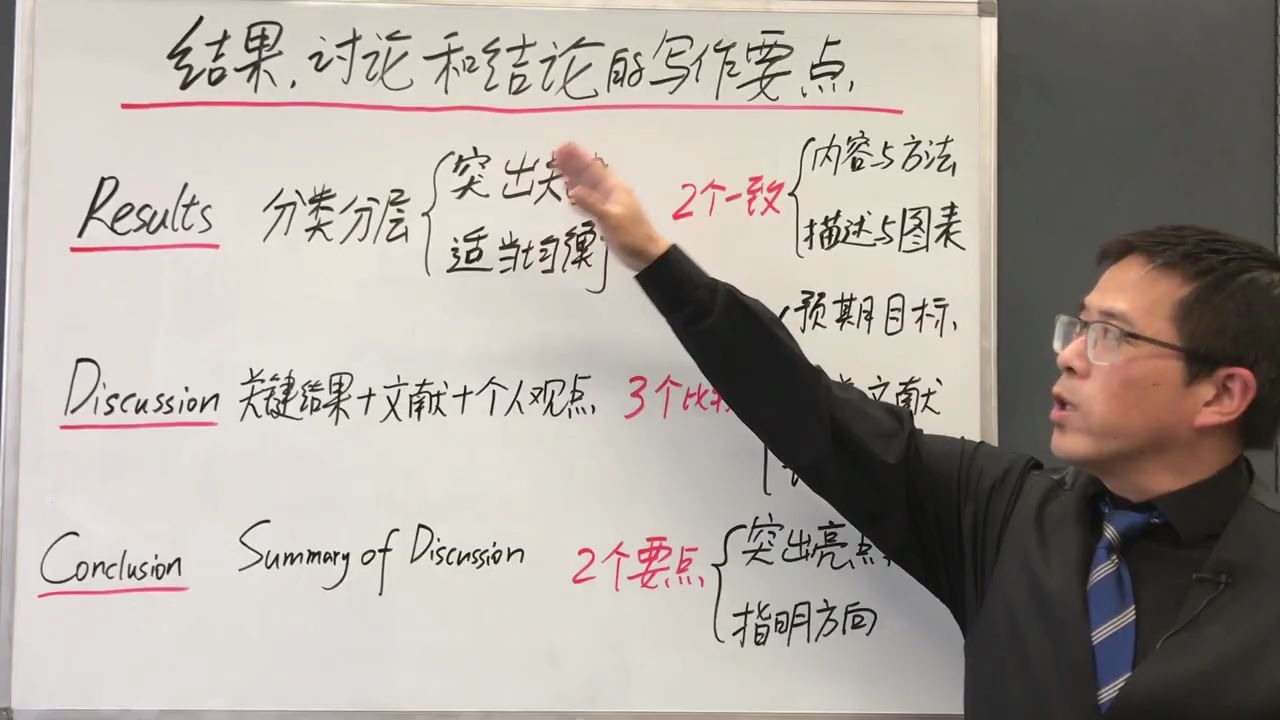 结果,讨论和结论的写作要点
Results 分类分层 突出 2个一致 内容与方法
适当均衡 描述与图表
预期目标
Discussion 关键结果+文献+个人观点 3个比较 文献
Conclusion Summary of Discussion 2个要点 突出亮点
指明方向